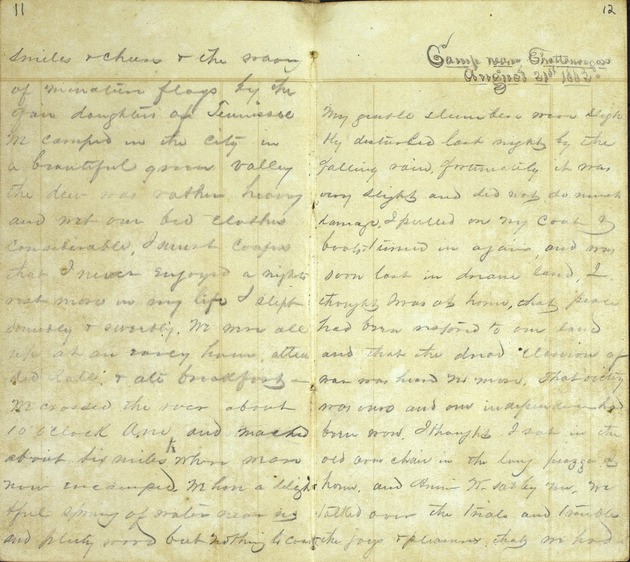 11
smiles & cheers & the waving
of miniature flags by the
fair daughters of Tennessee
We camped in the city in
a beautiful green valley
the dew was rather heavy
and wet our bed clothes
considerable, I must confess
that I never enjoyed a nights
rest more in my life I slept
soundly & sweetly. We were all
up at an early hour, atten
ded Role, & ate breakfast —
We crossed the river about
10 o'clock A.M. and marched
about six miles where we are
now encamped. We have a delight
tful spring of water near us
and plenty wood but nothing to cook
12
Camp near Chattanooga
August 21st 1863.
My gentle slumbers were sligh
tly disturbed last night by the
falling rain. fortunately it was
very slight and did not do much
damage, I pulled on my coat &
boots turned in again, and was
soon lost in dream land, I
thought I was at home, that peace
had been restored to our land
and that the dread clarion of
war was heard no more. That victory
was ours and our independence had
been won. I thought I sat in the
old arm chair in the long piazza at
home. and Annie W. sat by me, we
talked over the trials and troubles
the joys & pleasures, that we had